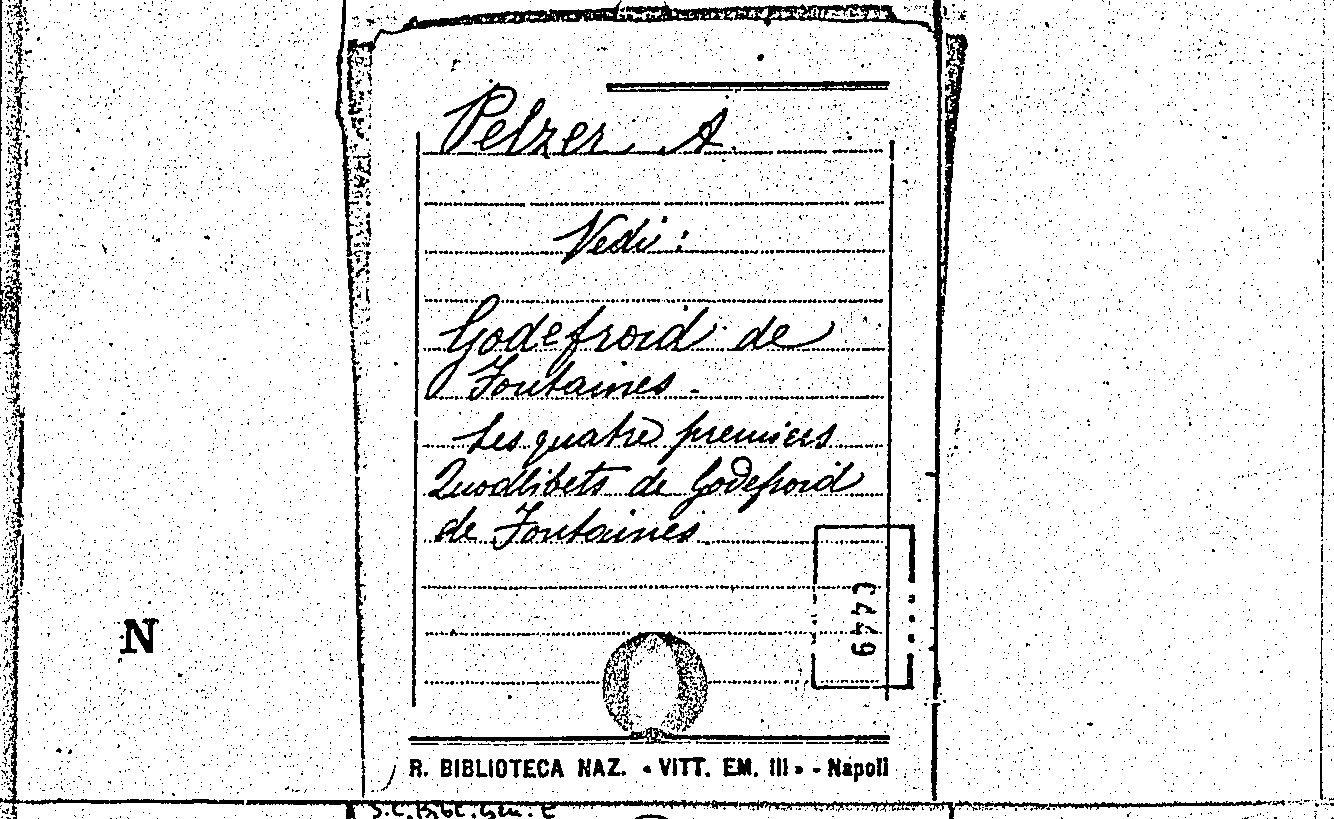 Pelzer A.
Vedi:
Godefroid de
Fontaines -
Les quatre premiers
Quodlibets de Godefroid
de Fontaines
N
R. BIBLIOTECA NAZ. « VITT. EM. III » - Napoli